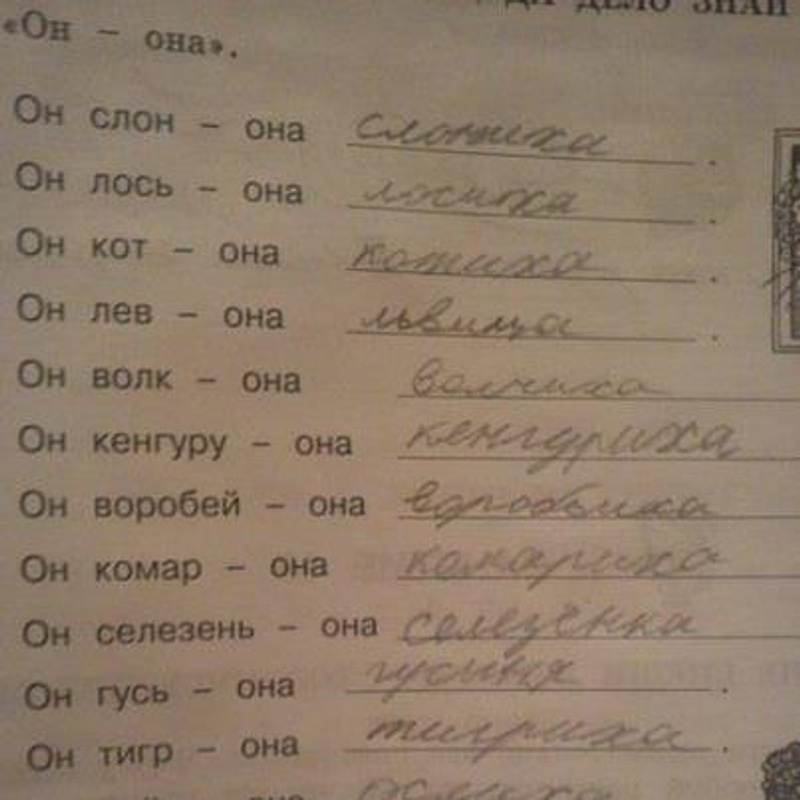 ДЕЛО ЗНАЙ
«Он – она».
Он слон – она слониха.
Он лось – она лосиха.
Он кот – она котиха.
Он лев – она львица.
Он волк – она волчиха
Он кенгуру – она кенгуриха
Он воробей – она воробьиха
Он комар – она комариха
Он селезень – она селезёнка
Он гусь – она гусыня.
Он тигр – она тигриха.
она ослиха